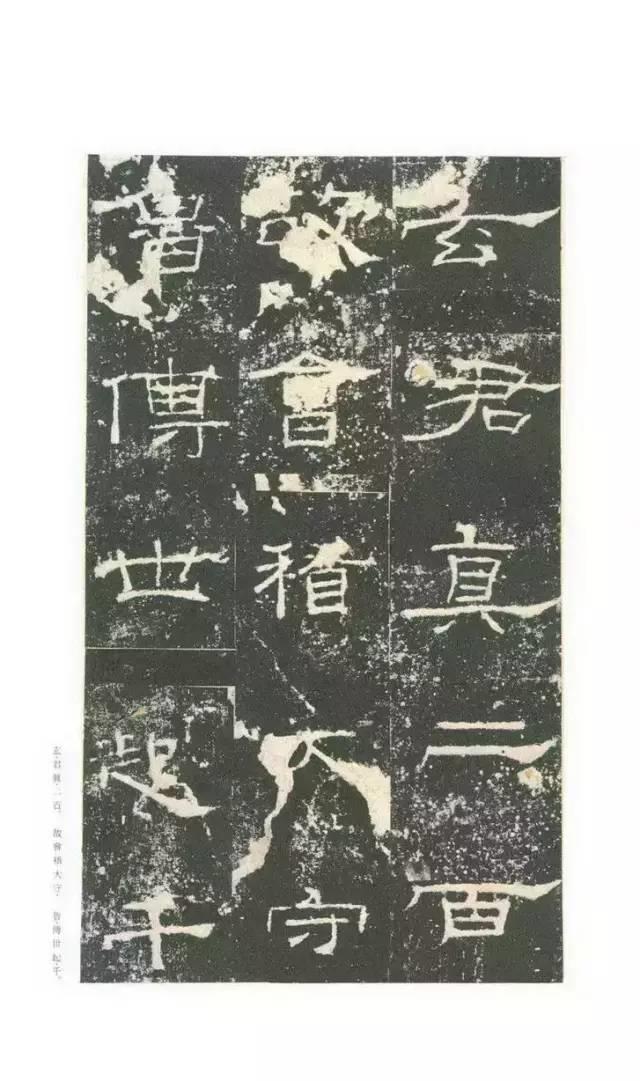 玄君真二百
故會稽大守
魯傅世起千
玄·君真·二百。　故會稽大守·魯傅世起·千。